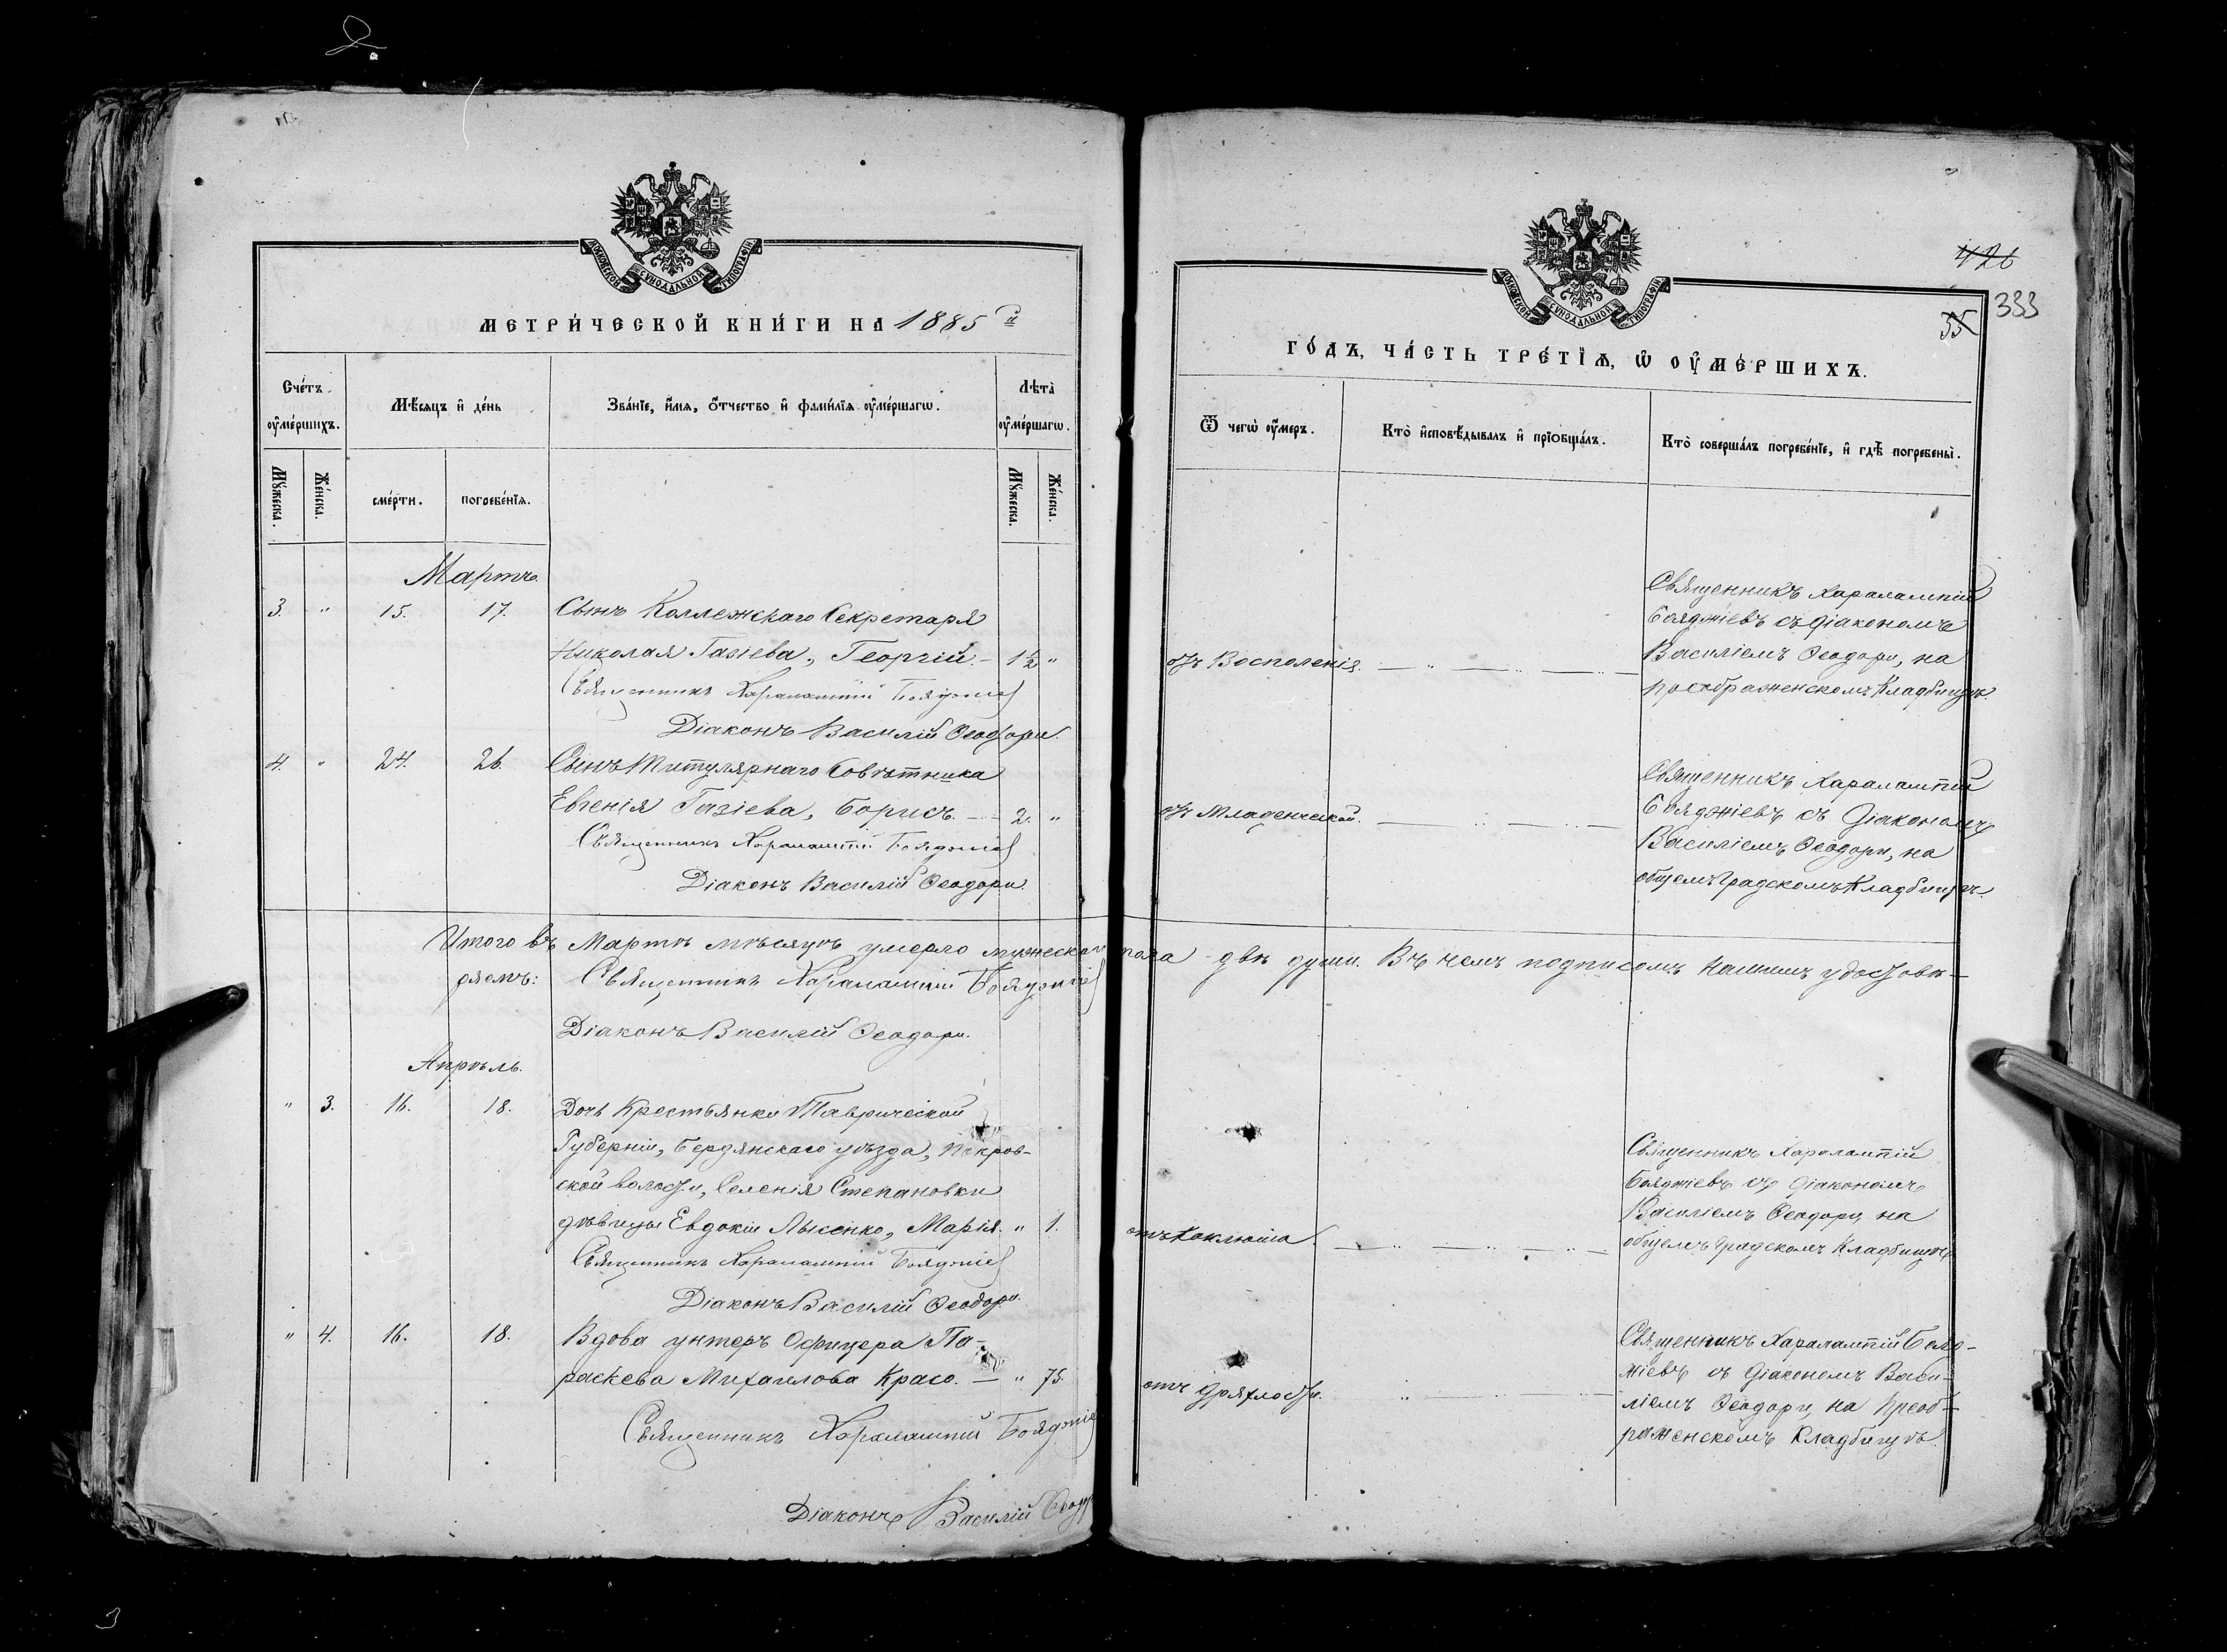 МОСКОВСКОЙ СѴНОДАЛЬНОЙ ТИПОГРАФІИ
МЕТРИ́ЧЕСКОЙ КНИ́ГИ НА 1885 й
Сче́тъ оу҆ме́ршихъ.
Мѣ́сяцъ и҆ де́нь
Зва́нїе, и҆́мѧ, ѻ҆́тчество и҆ фами́лїѧ оу҆ме́ршагѡ.
Лѣ́та оу҆ме́ршагѡ.
Мꙋ́жеска.
Же́нска.
сме́рти.
погребе́нїѧ.
Мꙋ́жеска.
Же́нска.
Мартъ.
3. " 15. 17. Сынъ Коллежскаго Секретаря
Николая Газіева, Георгій. – 1½ "
Священникъ Харалампій Бояджіев
Діаконъ Василій Ѳеодори.
4. " 24. 26. Сынъ Титулярнаго Совѣтника
Евгенія Газіева, Борисъ. – 2. "
Священникъ Харалампій Бояджіев
Діаконъ Василій Ѳеодори.
Итого въ Мартѣ мѣсяцѣ умерло мужескаго пола двѣ души. Въ чемъ подписомъ нашимъ удостовѣ–
ряемъ: Священникъ Харалампій Бояджіев
Діаконъ Василій Ѳеодори.
Апрѣль.
" 3. 16. 18. Дочь Крестьянки Таврической
Губерніи, Бердянскаго уѣзда, Покров–
ской волости, Селенія Степановки
дѣвицы Евдокіи Лысенко, Марія. " 1.
Священникъ Харалампій Бояджіев
Діаконъ Василій Ѳеодори.
" 4. 16. 18. Вдова унтеръ Офицера Па–
раскева Михаилова Красо. — " 75.
Священникъ Харалампій Бояджіев
Діаконъ Василій Ѳеодори
МОСКОВСКОЙ СѴНОДАЛЬНОЙ ТИПОГРАФІИ
426
55
333
ГО́ДЪ, ЧА́СТЬ ТРЕ́ТЇѦ, Ѡ҆ ОУ҆МЕ́РШИХЪ.
Ѿ чегѡ̀ оу҆́меръ.
Кто̀ и҆сповѣ́дывалъ и҆ прїѡбща́лъ.
Кто̀ соверша́лъ погребе́нїе, и҆ гдѣ̀ погребены̀.
отъ Восполенія.
Священникъ Харалампій
Бояджіевъ съ діакономъ
Василіемъ Ѳеодори, на
преображенскомъ Кладбищѣ.
отъ Младенческой.
Священникъ Харалампій
Бояджіевъ съ Діакономъ
Василіемъ Ѳеодори, на
общемъ Градскомъ Кладбищѣ.
отъ Коклюша
Священникъ Харалампій
Бояджіевъ съ Діакономъ
Василіемъ Ѳеодори, на
общемъ градскомъ Кладбищѣ
отъ дряхлости.
Священникъ Харалампій Бояд–
жіевъ съ Діакономъ Васи–
ліемъ Ѳеодори, на Преоб–
раженскомъ Кладбищѣ.
3